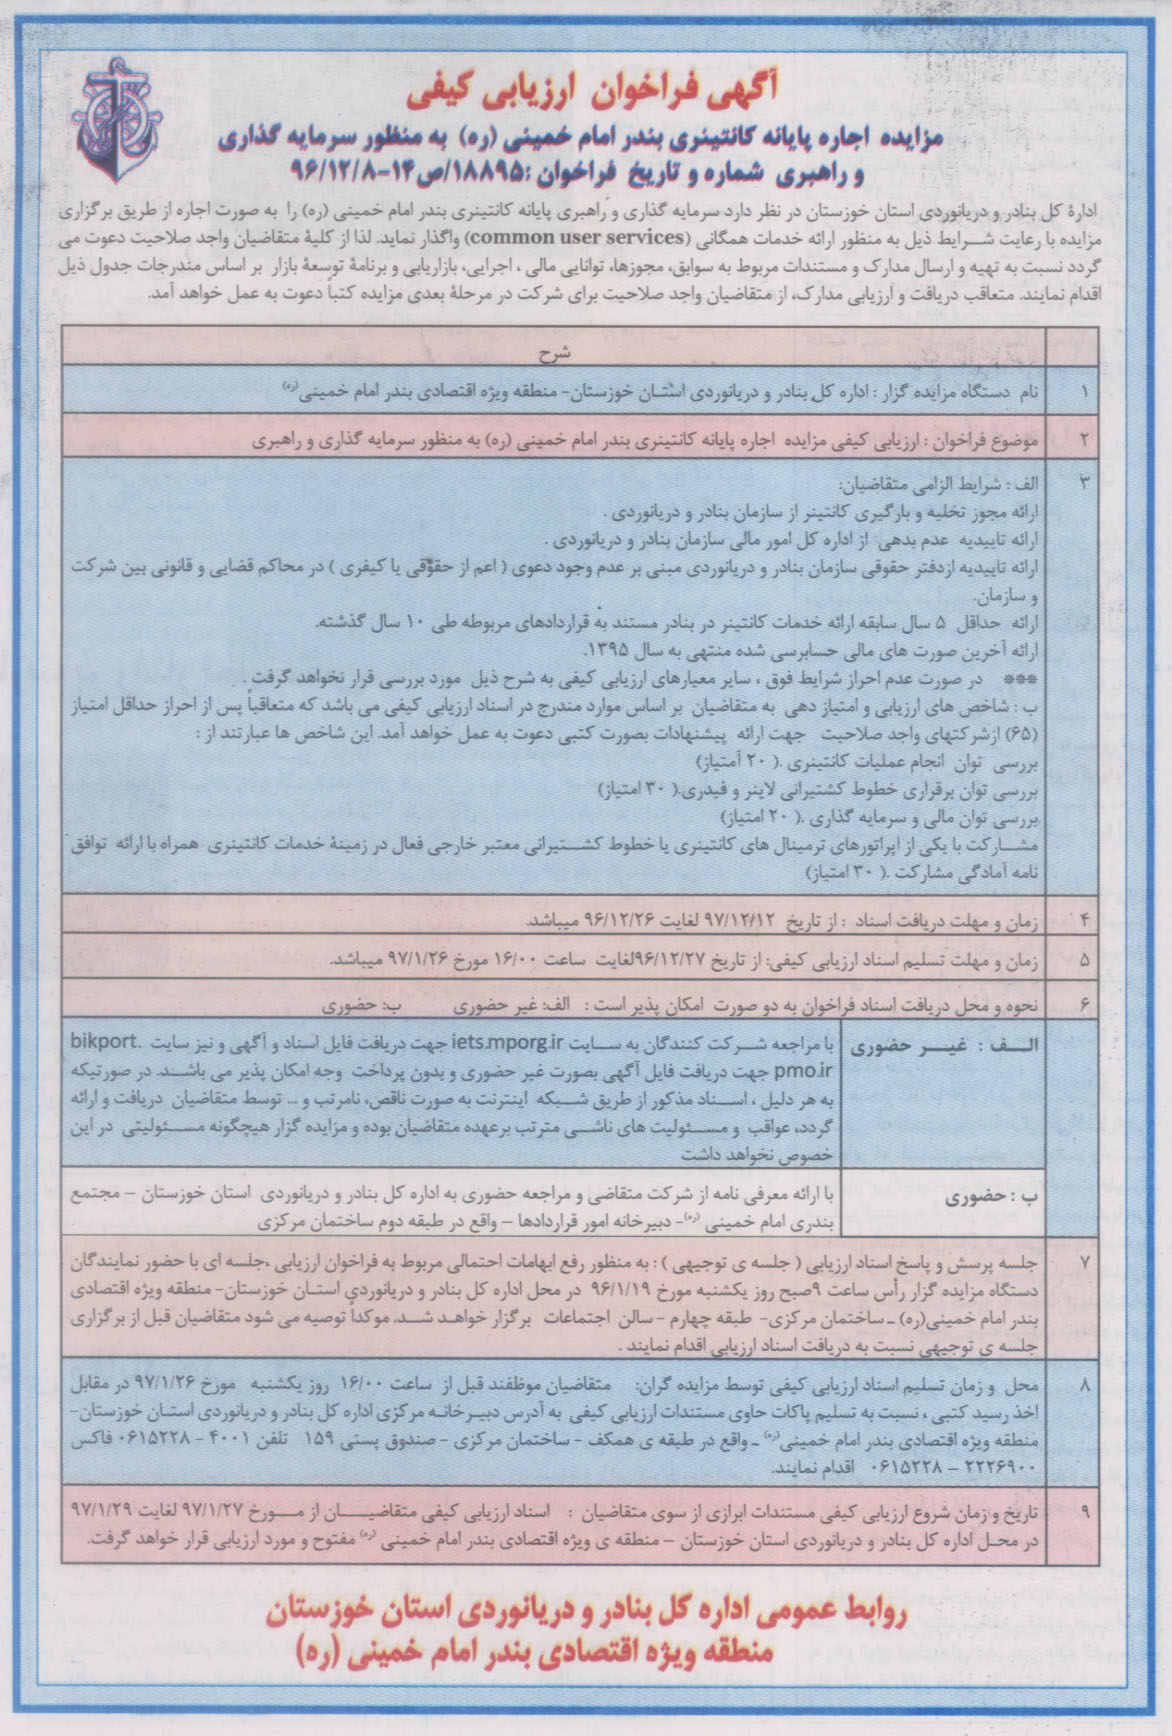 آگهی فراخوان ارزیابی کیفی
مزایده اجاره پایانه کانتینری بندر امام خمینی (ره) به منظور سرمایه گذاری
و راهبری شماره و تاریخ فراخوان :۱۸۸۹۵/ص۱۴-۹۶/۱۲/۸
ادارهٔ کل بنادر و دریانوردی استان خوزستان در نظر دارد سرمایه گذاری و راهبری پایانه کانتینری بندر امام خمینی (ره) را به صورت اجاره از طریق برگزاری
مزایده با رعایت شرایط ذیل به منظور ارائه خدمات همگانی (common user services) واگذار نماید. لذا از کلیهٔ متقاضیان واجد صلاحیت دعوت می
گردد نسبت به تهیه و ارسال مدارک و مستندات مربوط به سوابق، مجوزها، توانایی مالی ، اجرایی، بازاریابی و برنامهٔ توسعهٔ بازار بر اساس مندرجات جدول ذیل
اقدام نمایند. متعاقب دریافت و ارزیابی مدارک، از متقاضیان واجد صلاحیت برای شرکت در مرحلهٔ بعدی مزایده کتباً دعوت به عمل خواهد آمد.
شرح
۱ نام دستگاه مزایده گزار : اداره کل بنادر و دریانوردی استان خوزستان- منطقه ویژه اقتصادی بندر امام خمینی(ره)
۲ موضوع فراخوان : ارزیابی کیفی مزایده اجاره پایانه کانتینری بندر امام خمینی (ره) به منظور سرمایه گذاری و راهبری
۳ الف : شرایط الزامی متقاضیان:
ارائه مجوز تخلیه و بارگیری کانتینر از سازمان بنادر و دریانوردی .
ارائه تاییدیه عدم بدهی از اداره کل امور مالی سازمان بنادر و دریانوردی .
ارائه تاییدیه ازدفتر حقوقی سازمان بنادر و دریانوردی مبنی بر عدم وجود دعوی ( اعم از حقوقی یا کیفری ) در محاکم قضایی و قانونی بین شرکت
و سازمان.
ارائه حداقل ۵ سال سابقه ارائه خدمات کانتینر در بنادر مستند به قراردادهای مربوطه طی ۱۰ سال گذشته.
ارائه آخرین صورت های مالی حسابرسی شده منتهی به سال ۱۳۹۵.
*** در صورت عدم احراز شرایط فوق ، سایر معیارهای ارزیابی کیفی به شرح ذیل مورد بررسی قرار نخواهد گرفت .
ب : شاخص های ارزیابی و امتیاز دهی به متقاضیان بر اساس موارد مندرج در اسناد ارزیابی کیفی می باشد که متعاقباً پس از احراز حداقل امتیاز
(۶۵) ازشرکتهای واجد صلاحیت جهت ارائه پیشنهادات بصورت کتبی دعوت به عمل خواهد آمد. این شاخص ها عبارتند از :
بررسی توان انجام عملیات کانتینری .( ۲۰ امتیاز)
بررسی توان برقراری خطوط کشتیرانی لاینر و فیدری.( ۳۰ امتیاز)
بررسی توان مالی و سرمایه گذاری .( ۲۰ امتیاز)
مشارکت با یکی از اپراتورهای ترمینال های کانتینری یا خطوط کشتیرانی معتبر خارجی فعال در زمینهٔ خدمات کانتینری همراه با ارائه توافق
نامه آمادگی مشارکت .( ۳۰ امتیاز)
۴ زمان و مهلت دریافت اسناد : از تاریخ ۹۷/۱۲/۱۲ لغایت ۹۶/۱۲/۲۶ میباشد.
۵ زمان و مهلت تسلیم اسناد ارزیابی کیفی: از تاریخ ۹۶/۱۲/۲۷لغایت ساعت ۱۶/۰۰ مورخ ۹۷/۱/۲۶ میباشد.
۶ نحوه و محل دریافت اسناد فراخوان به دو صورت امکان پذیر است : الف: غیر حضوری ب: حضوری
الف : غیر حضوری با مراجعه شرکت کنندگان به سایت iets.mporg.ir جهت دریافت فایل اسناد و آگهی و نیز سایت bikport.
pmo.ir جهت دریافت فایل آگهی بصورت غیر حضوری و بدون پرداخت وجه امکان پذیر می باشد. در صورتیکه
به هر دلیل ، اسناد مذکور از طریق شبکه اینترنت به صورت ناقص، نامرتب و ... توسط متقاضیان دریافت و ارائه
گردد، عواقب و مسئولیت های ناشی مترتب برعهده متقاضیان بوده و مزایده گزار هیچگونه مسئولیتی در این
خصوص نخواهد داشت
ب : حضوری با ارائه معرفی نامه از شرکت متقاضی و مراجعه حضوری به اداره کل بنادر و دریانوردی استان خوزستان – مجتمع
بندری امام خمینی (ره)- دبیرخانه امور قراردادها – واقع در طبقه دوم ساختمان مرکزی
۷ جلسه پرسش و پاسخ اسناد ارزیابی ( جلسه ی توجیهی ) : به منظور رفع ابهامات احتمالی مربوط به فراخوان ارزیابی ،جلسه ای با حضور نمایندگان
دستگاه مزایده گزار رأس ساعت ۹صبح روز یکشنبه مورخ ۹۶/۱/۱۹ در محل اداره کل بنادر و دریانوردی استان خوزستان- منطقه ویژه اقتصادی
بندر امام خمینی(ره) – ساختمان مرکزی- طبقه چهارم – سالن اجتماعات برگزار خواهد شد. موکداً توصیه می شود متقاضیان قبل از برگزاری
جلسه ی توجیهی نسبت به دریافت اسناد ارزیابی اقدام نمایند .
۸ محل و زمان تسلیم اسناد ارزیابی کیفی توسط مزایده گران: متقاضیان موظفند قبل از ساعت ۱۶/۰۰ روز یکشنبه مورخ ۹۷/۱/۲۶ در مقابل
اخذ رسید کتبی ، نسبت به تسلیم پاکات حاوی مستندات ارزیابی کیفی به آدرس دبیرخانه مرکزی اداره کل بنادر و دریانوردی استان خوزستان-
منطقه ویژه اقتصادی بندر امام خمینی(ره) – واقع در طبقه ی همکف – ساختمان مرکزی – صندوق پستی ۱۵۹ تلفن ۴۰۰۱ – ۰۶۱۵۲۲۸ فاکس
۲۲۲۶۹۰۰ – ۰۶۱۵۲۲۸ اقدام نمایند.
۹ تاریخ و زمان شروع ارزیابی کیفی مستندات ابرازی از سوی متقاضیان : اسناد ارزیابی کیفی متقاضیان از مورخ ۹۷/۱/۲۷ لغایت ۹۷/۱/۲۹
در محل اداره کل بنادر و دریانوردی استان خوزستان – منطقه ی ویژه اقتصادی بندر امام خمینی (ره) مفتوح و مورد ارزیابی قرار خواهد گرفت.
روابط عمومی اداره کل بنادر و دریانوردی استان خوزستان
منطقه ویژه اقتصادی بندر امام خمینی (ره)